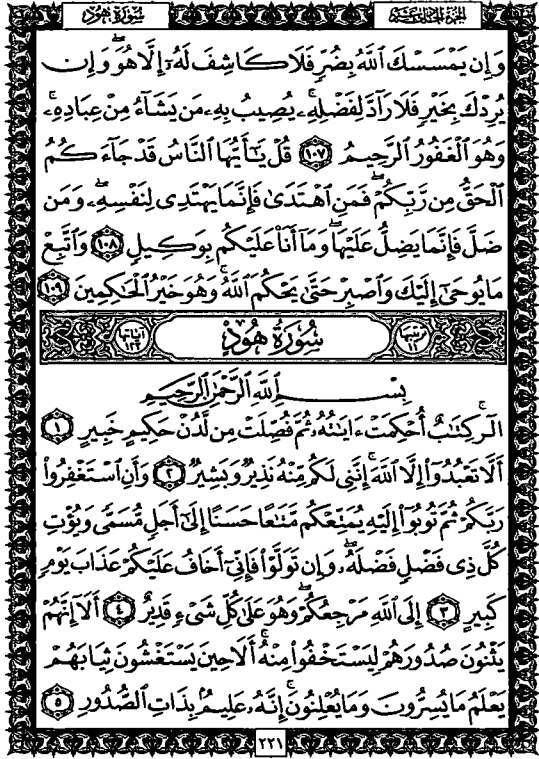 سُورَةُ هُودٍ
الجُزءُ الحَادِي عَشَرَ
وَإِن يَمْسَسْكَ ٱللَّهُ بِضُرٍّ فَلَا كَاشِفَ لَهُۥٓ إِلَّا هُوَ ۖ وَإِن
يُرِدْكَ بِخَيْرٍ فَلَا رَآدَّ لِفَضْلِهِۦ ۚ يُصِيبُ بِهِۦ مَن يَشَآءُ مِنْ عِبَادِهِۦ ۚ
وَهُوَ ٱلْغَفُورُ ٱلرَّحِيمُ ١٠٧ قُلْ يَٰٓأَيُّهَا ٱلنَّاسُ قَدْ جَآءَكُمُ
ٱلْحَقُّ مِن رَّبِّكُمْ ۖ فَمَنِ ٱهْتَدَىٰ فَإِنَّمَا يَهْتَدِى لِنَفْسِهِۦ ۖ وَمَن
ضَلَّ فَإِنَّمَا يَضِلُّ عَلَيْهَا ۖ وَمَآ أَنَا۠ عَلَيْكُم بِوَكِيلٍ ١٠٨ وَٱتَّبِعْ
مَا يُوحَىٰٓ إِلَيْكَ وَٱصْبِرْ حَتَّىٰ يَحْكُمَ ٱللَّهُ ۚ وَهُوَ خَيْرُ ٱلْحَٰكِمِينَ ١٠٩
سُورَةُ هُودٍ
بِسْمِ ٱللَّهِ ٱلرَّحْمَٰنِ ٱلرَّحِيمِ
الٓر ۚ كِتَٰبٌ أُحْكِمَتْ ءَايَٰتُهُۥ ثُمَّ فُصِّلَتْ مِن لَّدُنْ حَكِيمٍ خَبِيرٍ ١
أَلَّا تَعْبُدُوٓا۟ إِلَّا ٱللَّهَ ۚ إِنَّنِى لَكُم مِّنْهُ نَذِيرٌ وَبَشِيرٌ ٢ وَأَنِ ٱسْتَغْفِرُوا۟
رَبَّكُمْ ثُمَّ تُوبُوٓا۟ إِلَيْهِ يُمَتِّعْكُم مَّتَٰعًا حَسَنًا إِلَىٰٓ أَجَلٍ مُّسَمًّى وَيُؤْتِ
كُلَّ ذِى فَضْلٍ فَضْلَهُۥ ۖ وَإِن تَوَلَّوْا۟ فَإِنِّىٓ أَخَافُ عَلَيْكُمْ عَذَابَ يَوْمٍ
كَبِيرٍ ٣ إِلَى ٱللَّهِ مَرْجِعُكُمْ ۖ وَهُوَ عَلَىٰ كُلِّ شَىْءٍ قَدِيرٌ ٤ أَلَآ إِنَّهُمْ
يَثْنُونَ صُدُورَهُمْ لِيَسْتَخْفُوا۟ مِنْهُ ۚ أَلَا حِينَ يَسْتَغْشُونَ ثِيَابَهُمْ
يَعْلَمُ مَا يُسِرُّونَ وَمَا يُعْلِنُونَ ۚ إِنَّهُۥ عَلِيمٌۢ بِذَاتِ ٱلصُّدُورِ ٥
٢٢١